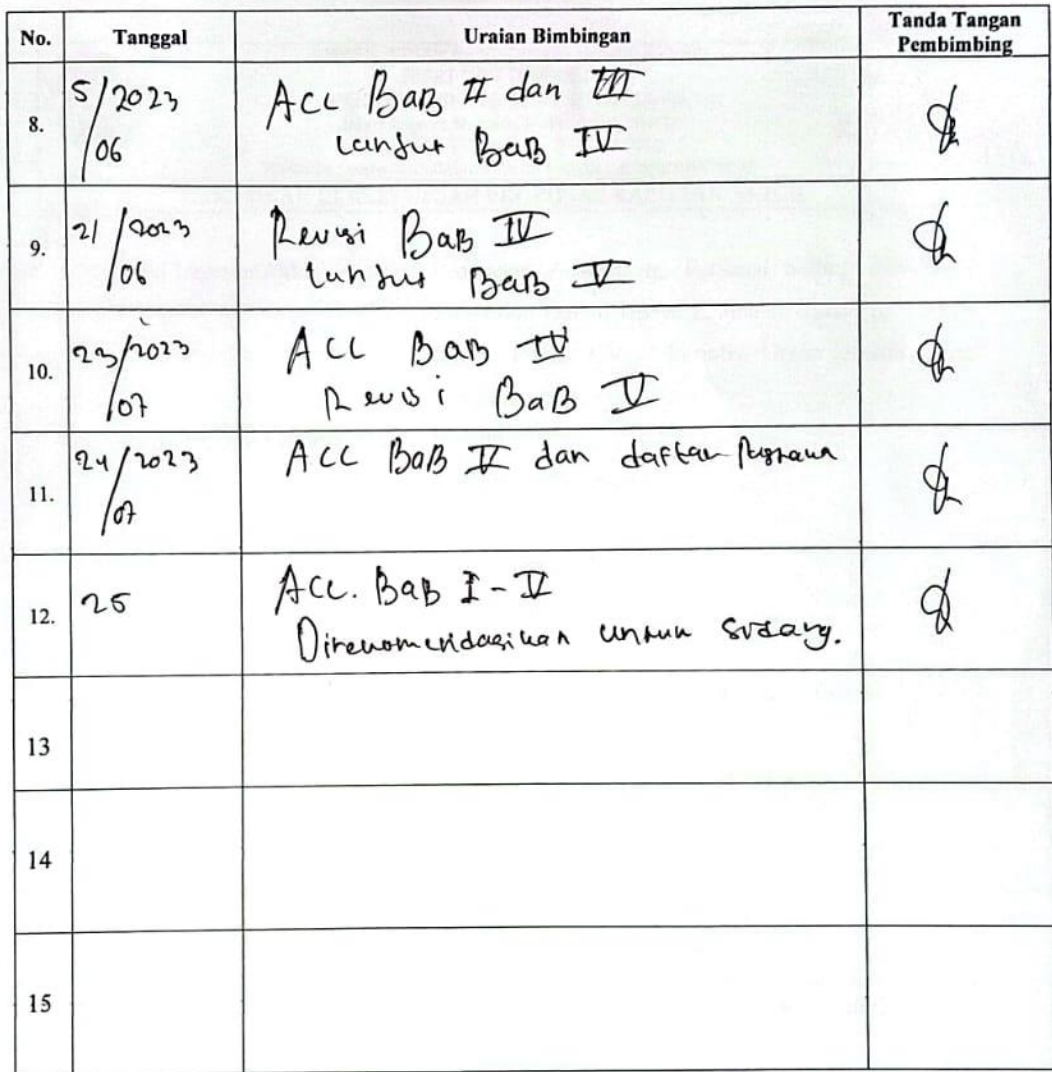 No. Tanggal Uraian Bimbingan Tanda Tangan Pembimbing
8. 5/2023 Acc BaB II dan III
/06 Lanjut BaB IV
9. 21/2023 Revisi BaB IV
/06 Lanjut BaB V
10. 23/2023 Acc BaB IV
/07 Revisi BaB V
11. 24/2023 Acc BaB V dan daftar Pustaka
/07
12. 25 Acc. BaB I - V
Direkomendasikan untuk sidang.
13
14
15